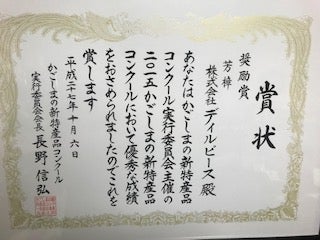 賞状
奨励賞
芳樟
株式会社デイルピース殿
あなたはかごしまの新特産品
コンクール実行委員会主催の
二〇一五かごしまの新特産品
コンクールにおいて優秀な成績
をおさめられましたのでこれを
賞します
平成二十七年十月六日
かごしまの新特産品コンクール
実行委員会会長 長野信弘